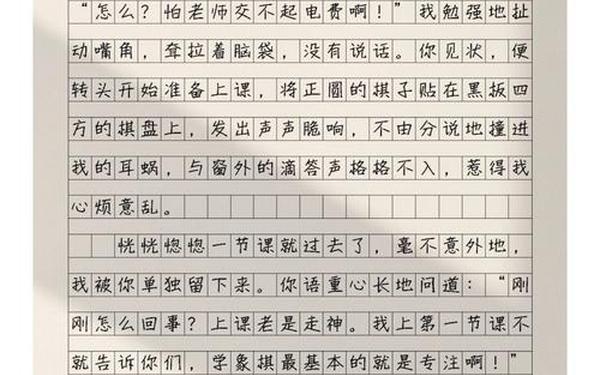 “怎么？怕老师交不起电费啊！”我勉强地扯
动嘴角，耷拉着脑袋，没有说话。你见状，便
转头开始准备上课，将正圆的棋子贴在黑板四
方的棋盘上，发出声声脆响，不由分说地撞进
我的耳蜗，与窗外的滴答声格格不入，惹得我
心烦意乱。
恍恍惚惚一节课就过去了，毫不意外地，
我被你单独留下来。你语重心长地问道：“刚
刚怎么回事？上课老是走神。我上第一节课不
就告诉你们，学象棋最基本的就是专注啊！”